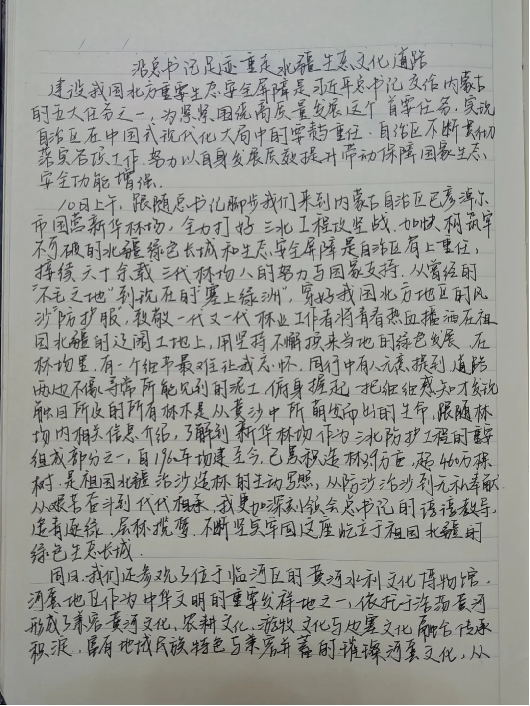 沿总书记足迹 重走北疆生态文化道路
建设我国北方重要生态安全屏障是习近平总书记交给内蒙古
的五大任务之一，为紧紧围绕高质量发展这个首要任务，实现
自治区在中国式现代化大局中的重任，自治区不断
落实各项工作，努力以自身发展质效提升带动保障国家生态
安全功能增强。
10日上午，跟随总书记脚步我们来到内蒙古自治区巴彦淖尔
市国营新华林场，全力打好三北工程攻坚战，加快构筑牢
不可破的北疆绿色长城和生态安全屏障是自治区肩上重任，
接续六十余载三代林场人的努力与国家支持，从曾经的
"不毛之地"到现在的"塞上绿洲"，穿好我国北方地区的风
沙"防护服"，致敬一代又一代林业工作者将青春热血播洒在祖
国北疆的辽阔土地上，用坚持不懈换来当地的绿色发展。在
林场里，有一个细节最难让我忘怀，同行中有人无意提到道路
两边不像寻常所能见到的泥土，俯身握起一把细细感知才发现
触目所及的所有林木是从黄沙中所萌发而出的生命，跟随林
场内相关信息介绍，了解到新华林场作为三北防护工程的重要
组成部分之一，自1960年场建至今，已累积造林万亩，超460万株
树，是祖国北疆治沙造林的生动写照，从防沙治沙到无私奉献
从艰苦奋斗到代代相承，我更加深刻领会总书记的谆谆教导，
追青逐绿，层林揽翠，不断坚实牢固这座屹立于祖国北疆的
绿色生态长城。
同日，我们还参观了位于临河区的黄河水利文化博物馆，
河套地区作为中华文明的重要发祥地之一，依托于浩荡黄河
形成了兼容黄河文化、农耕文化、游牧文化与边塞文化融合传承
积淀，富有地域民族特色与兼容并蓄的璀璨河套文化，从